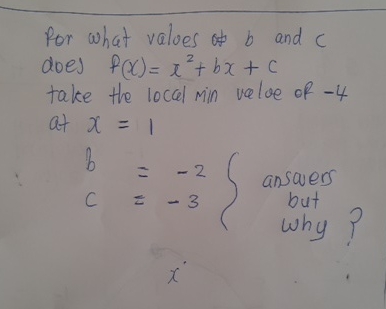 For what values of b and c
does f(x) = x² + bx + c
take the local min value of -4
at x = 1
b = -2
c = -3
answers
but
why?
x